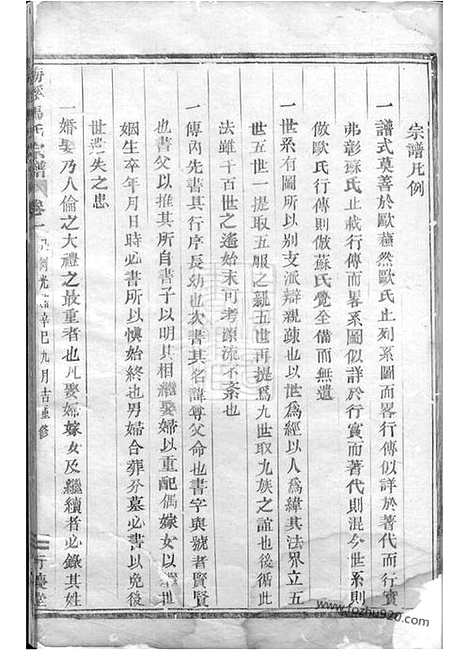 宗譜凡例
一譜式莫善於歐蘇然歐氏止列系圖而畧行傳似詳於著代而行實
弗彰蘇氏止載行傳而畧系圖似詳於行實而著代則混今世系則
倣歐氏行傳則倣蘇氏覺全備而無遺
一世系有圖所以別支派辯親疎也以世爲經以人爲緯其法界立五
世五世一提取五服之親五世再提爲九世取九族之誼也後循此
法雖千百世之遙始末可考源流不紊也
一傳內先書其行序長幼也次書其名諱尊父命也書字與號者賢賢
也書父以推其所自書子以明其相繼娶婦以重配偶嫁女以
姻生卒年月日時必書所以愼始終也男婦合葬分墓必書以免後
世遺失之患
一婚娶乃人倫之大禮之最重者也凡娶婦嫁女及繼續者必錄其姓
氏宗譜
卷一
光緒辛巳九月吉重修
行慶堂
www.fozhu920.com